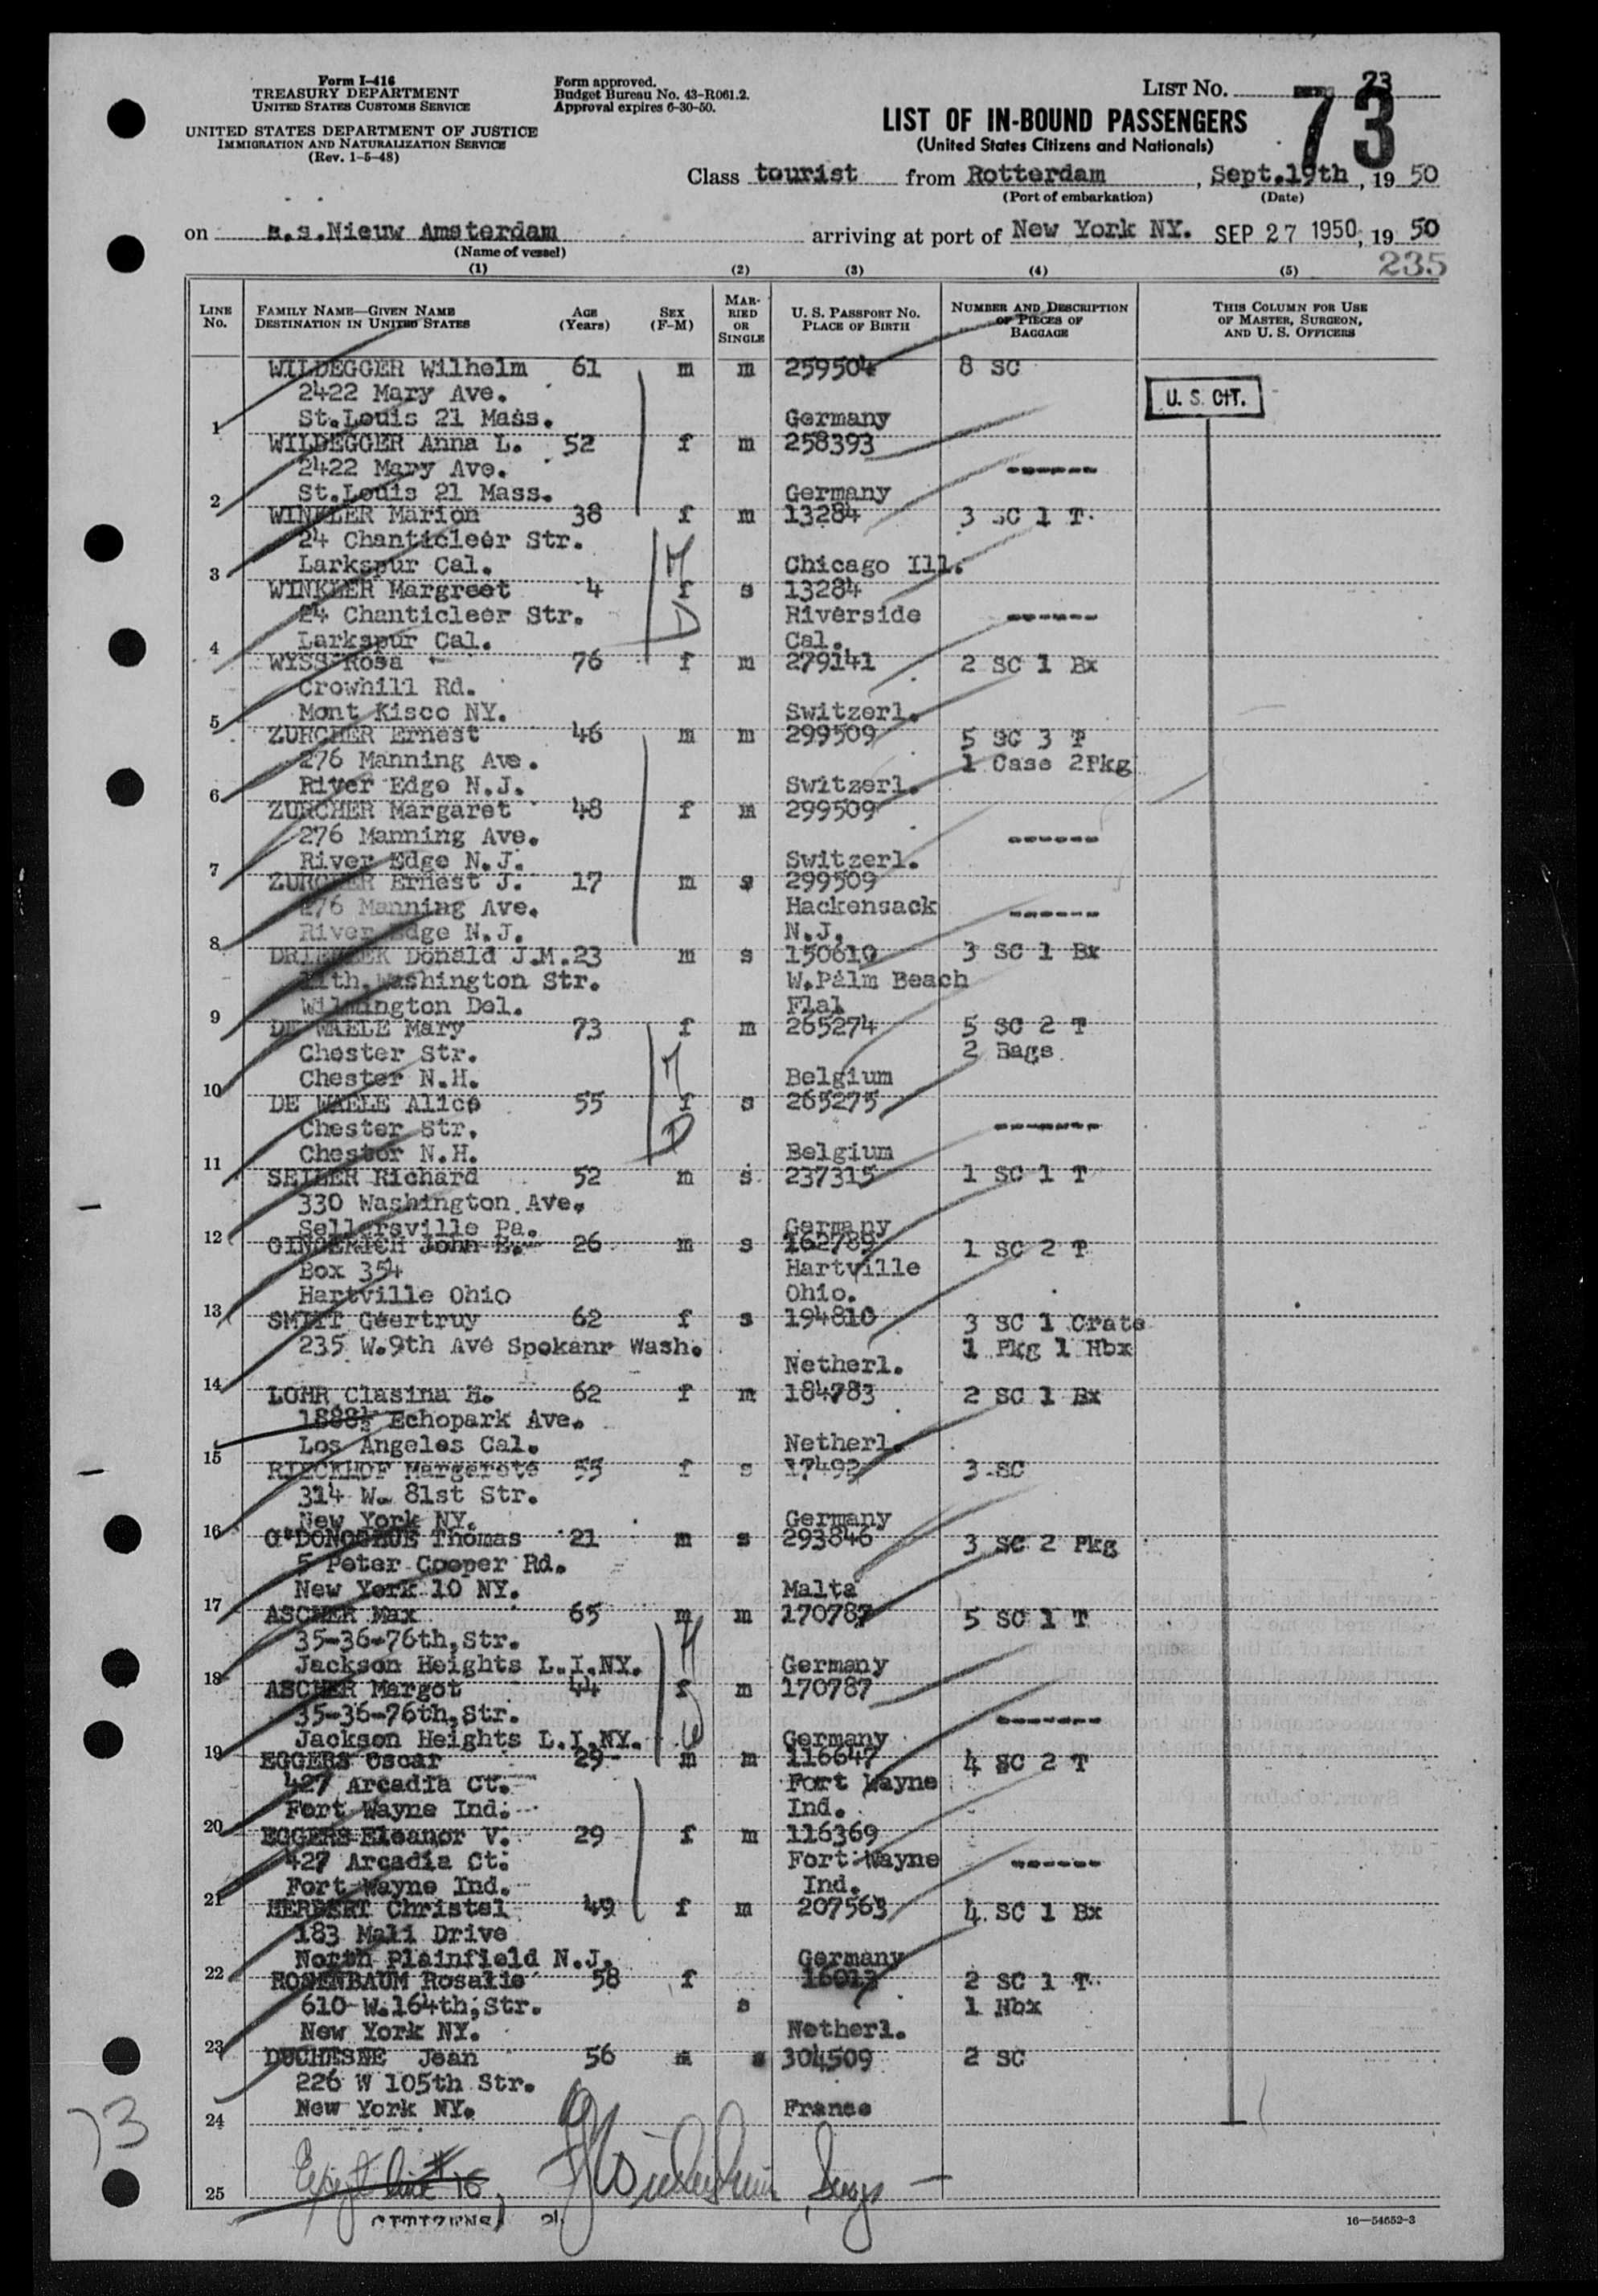 Form I-416
TREASURY DEPARTMENT
UNITED STATES CUSTOMS SERVICE
UNITED STATES DEPARTMENT OF JUSTICE
IMMIGRATION AND NATURALIZATION SERVICE
(Rev. 1-5-48)
Form approved.
Budget Bureau No. 43-R061.2.
Approval expires 6-30-50.
LIST NO. 23
73
LIST OF IN-BOUND PASSENGERS
(United States Citizens and Nationals)
Class tourist from Rotterdam, Sept.19th, 19 50
(Port of embarkation) (Date)
on s.s.Nieuw Amsterdam arriving at port of New York NY. SEP 27 1950, 19 50
(Name of vessel)
235
(1) (2) (3) (4) (5)
LINE NO. FAMILY NAME—GIVEN NAME DESTINATION IN UNITED STATES AGE (YEARS) SEX (F-M) MARRIED OR SINGLE U. S. PASSPORT NO. PLACE OF BIRTH NUMBER AND DESCRIPTION OF PIECES OF BAGGAGE THIS COLUMN FOR USE OF MASTER, SURGEON, AND U. S. OFFICERS
WILDEGGER Wilhelm 61 m m 259504 8 SC
2422 Mary Ave. U. S. CIT.
1 St.Louis 21 Mass. Germany
WILDEGGER Anna L. 52 f m 258393
2422 Mary Ave. ------
2 St.Louis 21 Mass. Germany
WINKLER Marion 38 f m 13284 3 SC 1 T
24 Chanticleer Str.
3 Larkspur Cal. Chicago Ill. M
WINKLER Margreet 4 f s 13284
24 Chanticleer Str. Riverside ------
4 Larkspur Cal. Cal. D
WYSS Rosa 76 f m 279141 2 SC 1 Bx
Crowhill Rd.
5 Mont Kisco NY. Switzerl.
ZURCHER Ernest 46 m m 299509 5 SC 3 T
276 Manning Ave. 1 Case 2Pkg
6 River Edge N.J. Switzerl.
ZURCHER Margaret 48 f m 299509
276 Manning Ave. ------
7 River Edge N.J. Switzerl.
ZURCHER Ernest J. 17 m s 299509
276 Manning Ave. Hackensack ------
8 River Edge N.J. N.J.
Donald J.M. 23 m s 150610 3 SC 1 Bx
11th, Washington Str. W.Palm Beach
9 Wilmington Del. Flal
DE WAELE Mary 73 f m 265274 5 SC 2 T
Chester Str. 2 Bags
10 Chester N.H. Belgium M
DE WAELE Alice 55 f s 265275
Chester Str. ------- D
11 Chester N.H. Belgium
SEILER Richard 52 m s 237315 1 SC 1 T
330 Washington Ave.
12 Sellersville Pa. Germany
GINGERICH John E. 26 m s 162789 1 SC 2 T
Box 354 Hartville
13 Hartville Ohio Ohio.
SMITT Geertruy 62 f s 194810 3 SC 1 Crate
235 W.9th Ave Spokanr Wash. 1 Pkg 1 Hbx
14 Netherl.
LOHR Clasina H. 62 f m 184783 2 SC 1 Bx
1888½ Echopark Ave.
15 Los Angeles Cal. Netherl.
RIECKHOF Margerete 55 f s 17492 3 SC
314 W. 81st Str.
16 New York NY. Germany
O'DONOGHUE Thomas 21 m s 293846 3 SC 2 Pkg
5 Peter Cooper Rd.
17 New York 10 NY. Malta
ASCHER Max 65 m m 170787 5 SC 1 T
35-36-76th,Str.
18 Jackson Heights L.I.NY. Germany H
ASCHER Margot 44 f m 170787
35-36-76th,Str. -------
19 Jackson Heights L.I.NY. Germany W
EGGERS Oscar 29 m m 116647 4 SC 2 T
427 Arcadia Ct. Fort Wayne
20 Fort Wayne Ind. Ind.
EGGERS Eleanor V. 29 f m 116369
427 Arcadia Ct. Fort Wayne ------
21 Fort Wayne Ind. Ind.
HERBERT Christel 49 f m 207563 4 SC 1 Bx
183 Mali Drive
22 North Plainfield N.J. Germany
ROSENBAUM Rosalie 58 f s 16013 2 SC 1 T
610 W.164th,Str. 1 Hbx
23 New York NY. Netherl.
DUCHESNE Jean 56 m s 304509 2 SC
226 W 105th Str.
24 New York NY. France
73
25 Except line # 16
CITIZENS
16—54652-3